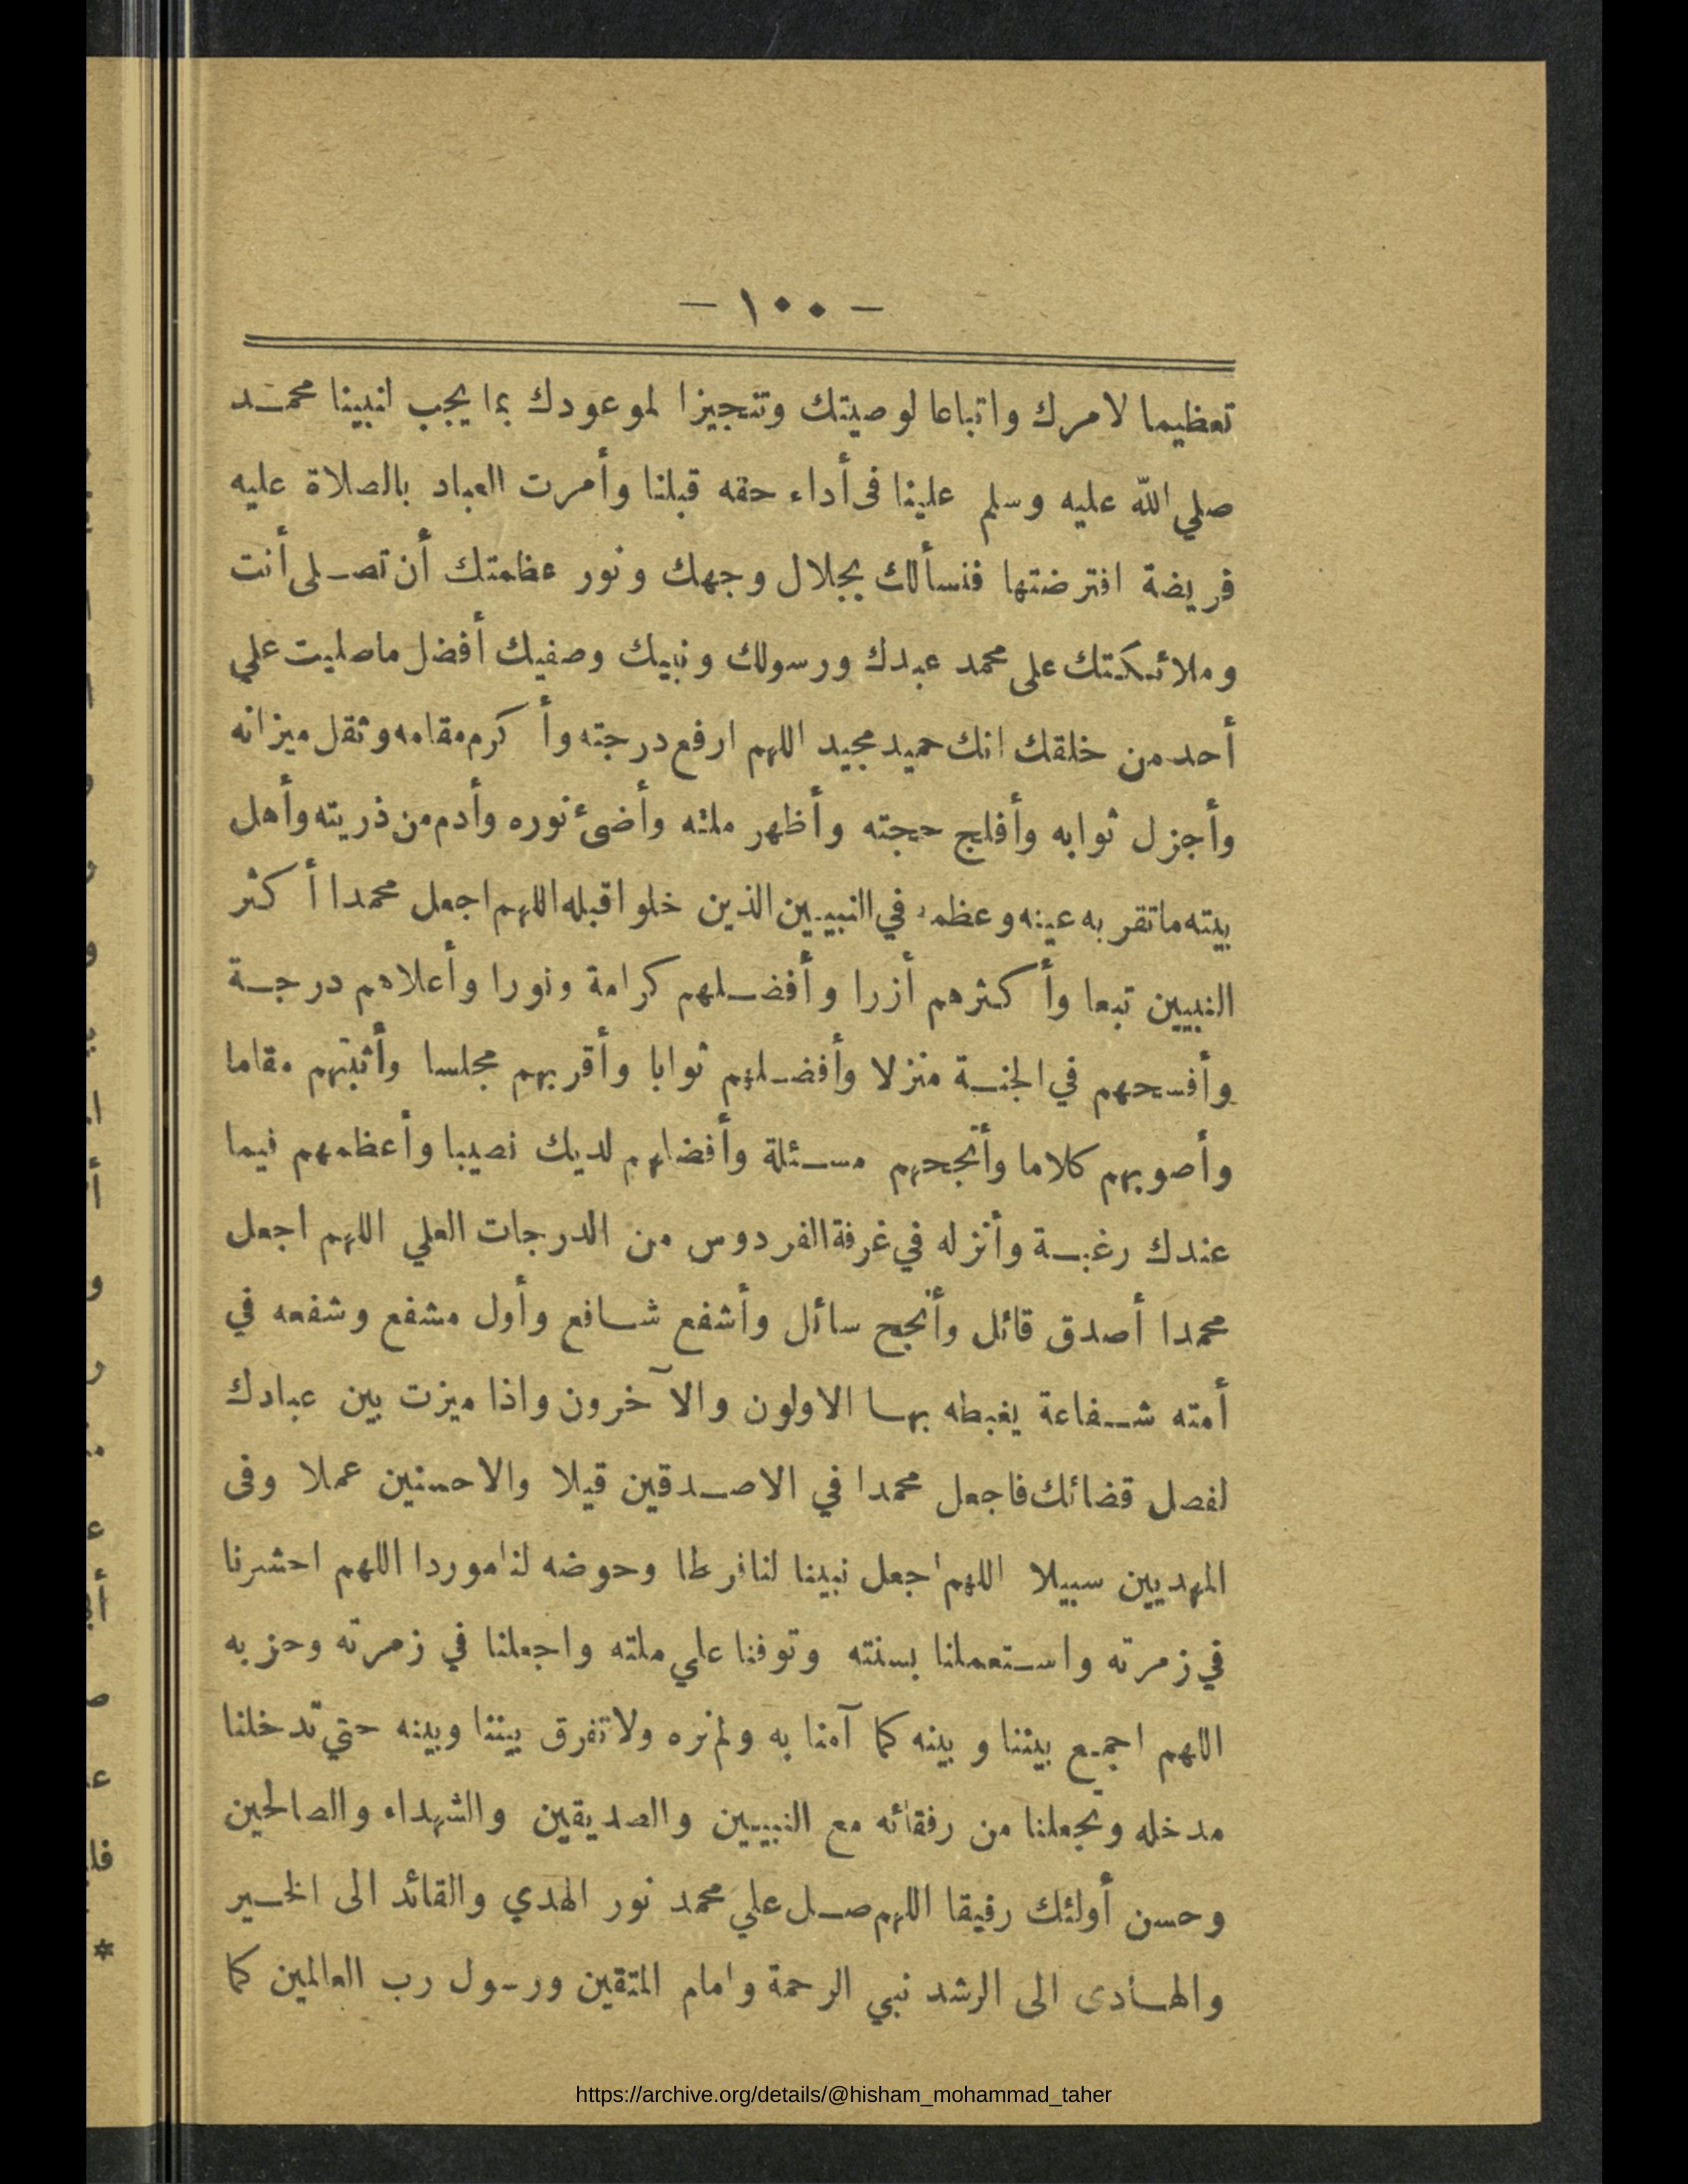 — ١٠٠ —
تعظيما لامرك واتباعا لوصيتك وتنجيزا لموعودك بما يجب لنبينا محمد
صلي الله عليه وسلم علينا فى أداء حقه قبلنا وأمرت العباد بالصلاة عليه
فريضة افترضتها فنسألك بجلال وجهك ونور عظمتك أن تصلى أنت
وملائكتك على محمد عبدك ورسولك ونبيك وصفيك أفضل ماصليت علي
أحد من خلقك انك حميد مجيد اللهم ارفع درجته وأكرم مقامه وثقل ميزانه
وأجزل ثوابه وأفلج حجته وأظهر ملته وأضئ نوره وأدم من ذريته وأهل
بيته ماتقر به عينه وعظمه في النبيين الذين خلوا قبله اللهم اجعل محمدا أكثر
النبيين تبعا وأكثرهم أزرا وأفضلهم كرامة ونورا وأعلاهم درجة
وأفسحهم في الجنة منزلا وأفضلهم ثوابا وأقربهم مجلسا وأثبتهم مقاما
وأصوبهم كلاما وأنجحهم مسئلة وأفضلهم لديك نصيبا وأعظمهم فيما
عندك رغبة وأنزله في غرفة الفردوس من الدرجات العلي اللهم اجعل
محمدا أصدق قائل وأنجح سائل وأشفع شافع وأول مشفع وشفعه في
أمته شفاعة يغبطه بها الاولون والآخرون واذا ميزت بين عبادك
لفصل قضائك فاجعل محمدا في الاصدقين قيلا والاحسنين عملا وفى
المهديين سبيلا اللهم اجعل نبينا لنا فرطا وحوضه لنا موردا اللهم احشرنا
في زمرته واستعملنا بسنته وتوفنا علي ملته واجعلنا في زمرته وحزبه
اللهم اجمع بيننا وبينه كما آمنا به ولم نره ولاتفرق بيننا وبينه حتي تدخلنا
مدخله وتجعلنا من رفقائه مع النبيين والصديقين والشهداء والصالحين
وحسن أولئك رفيقا اللهم صل علي محمد نور الهدي والقائد الى الخير
والهادى الى الرشد نبي الرحمة وامام المتقين ورسول رب العالمين كما
https://archive.org/details/@hisham_mohammad_taher